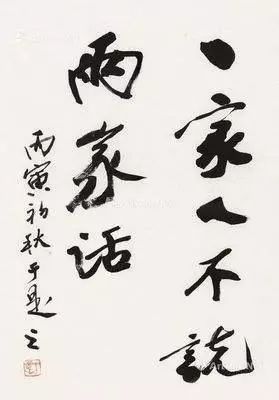 一家人不説
兩家话
丙寅初秋于是之